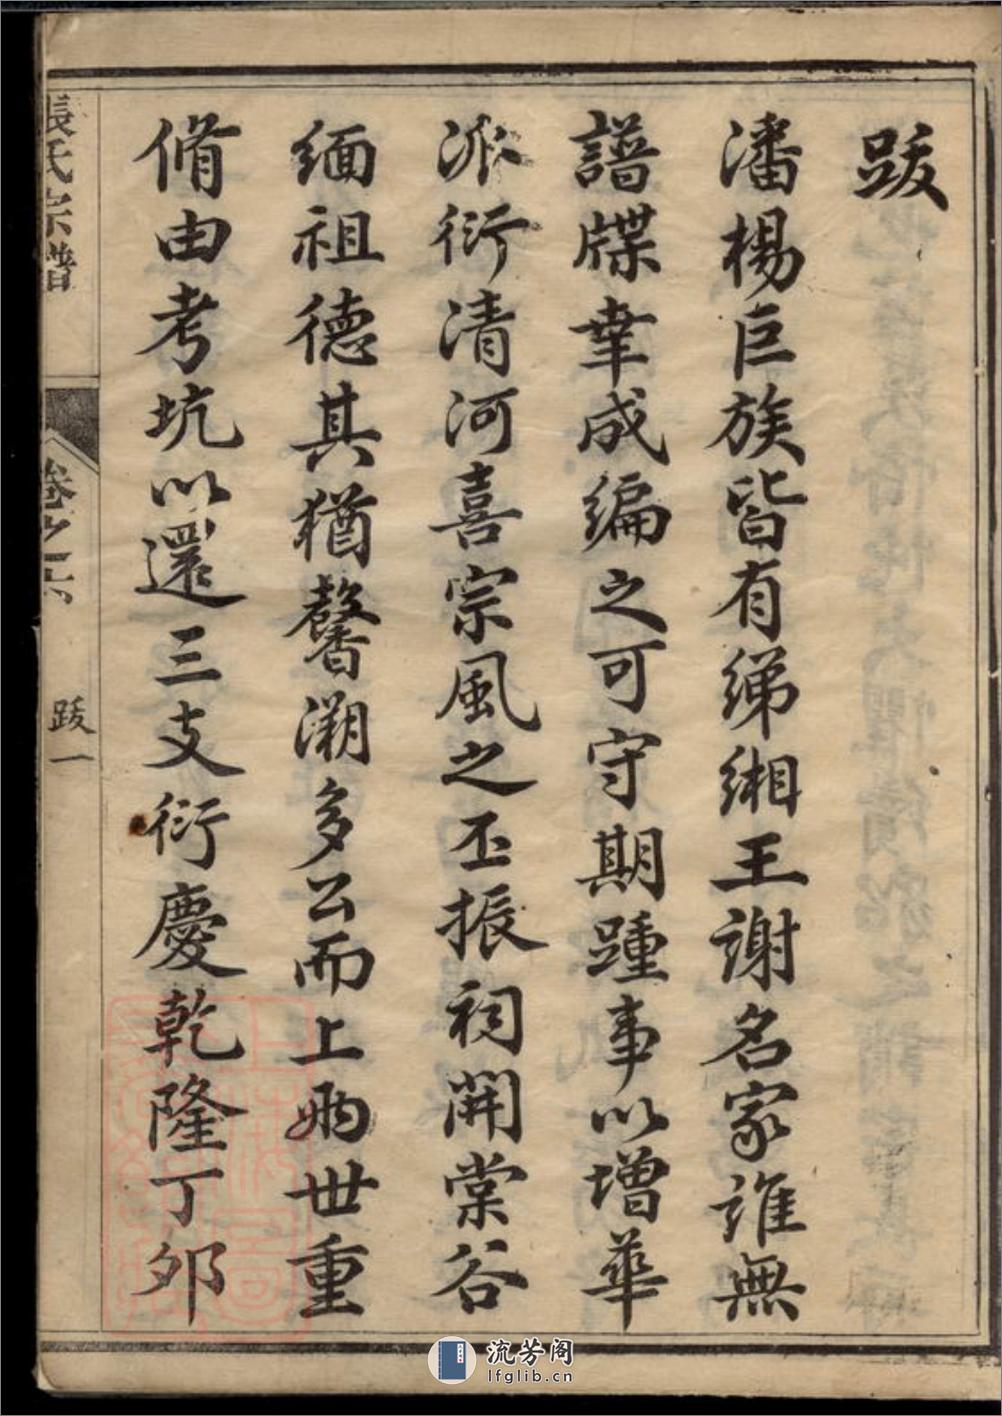 跋
潘楊巨族皆有綈緗王謝名家誰無
譜牒幸成編之可守期踵事以增華
派衍清河喜宗風之丕振祠開棠谷
緬祖德其猶馨溯多公而上兩世重
脩由考坑以還三支衍慶乾隆丁卯
張氏宗譜
卷之六
跋一
流芳阁
lfglib.cn